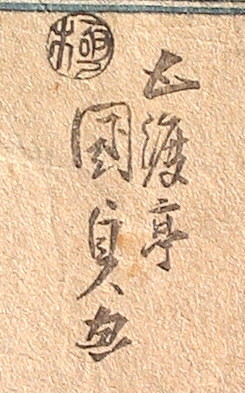 五渡亭
國貞画
極